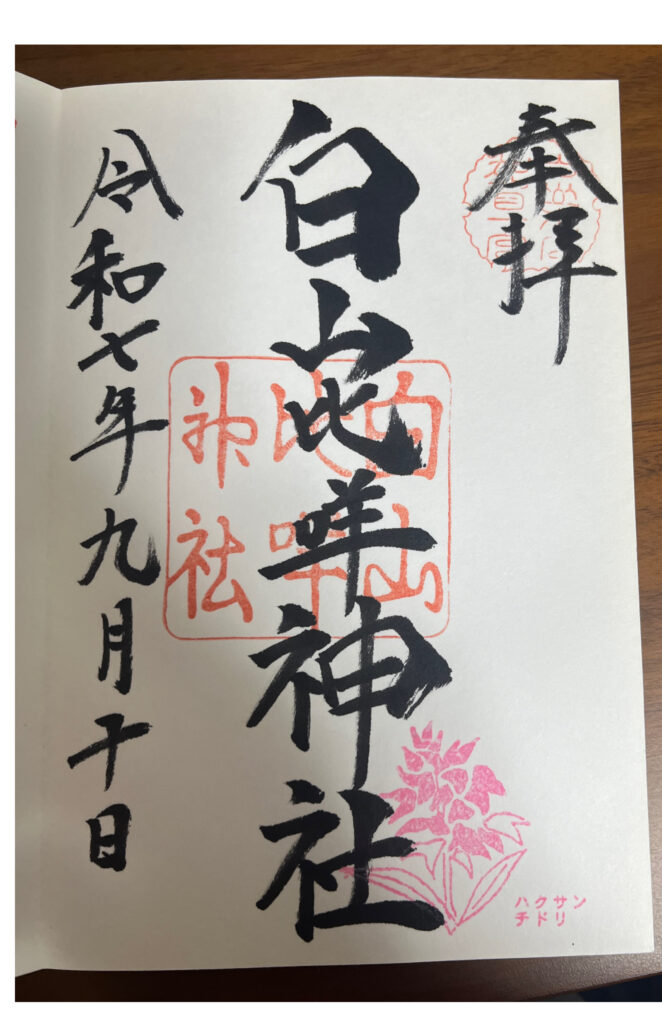 奉拝
白山比咩神社
白山
比咩
神社
令和七年九月十日
ハクサン
チドリ